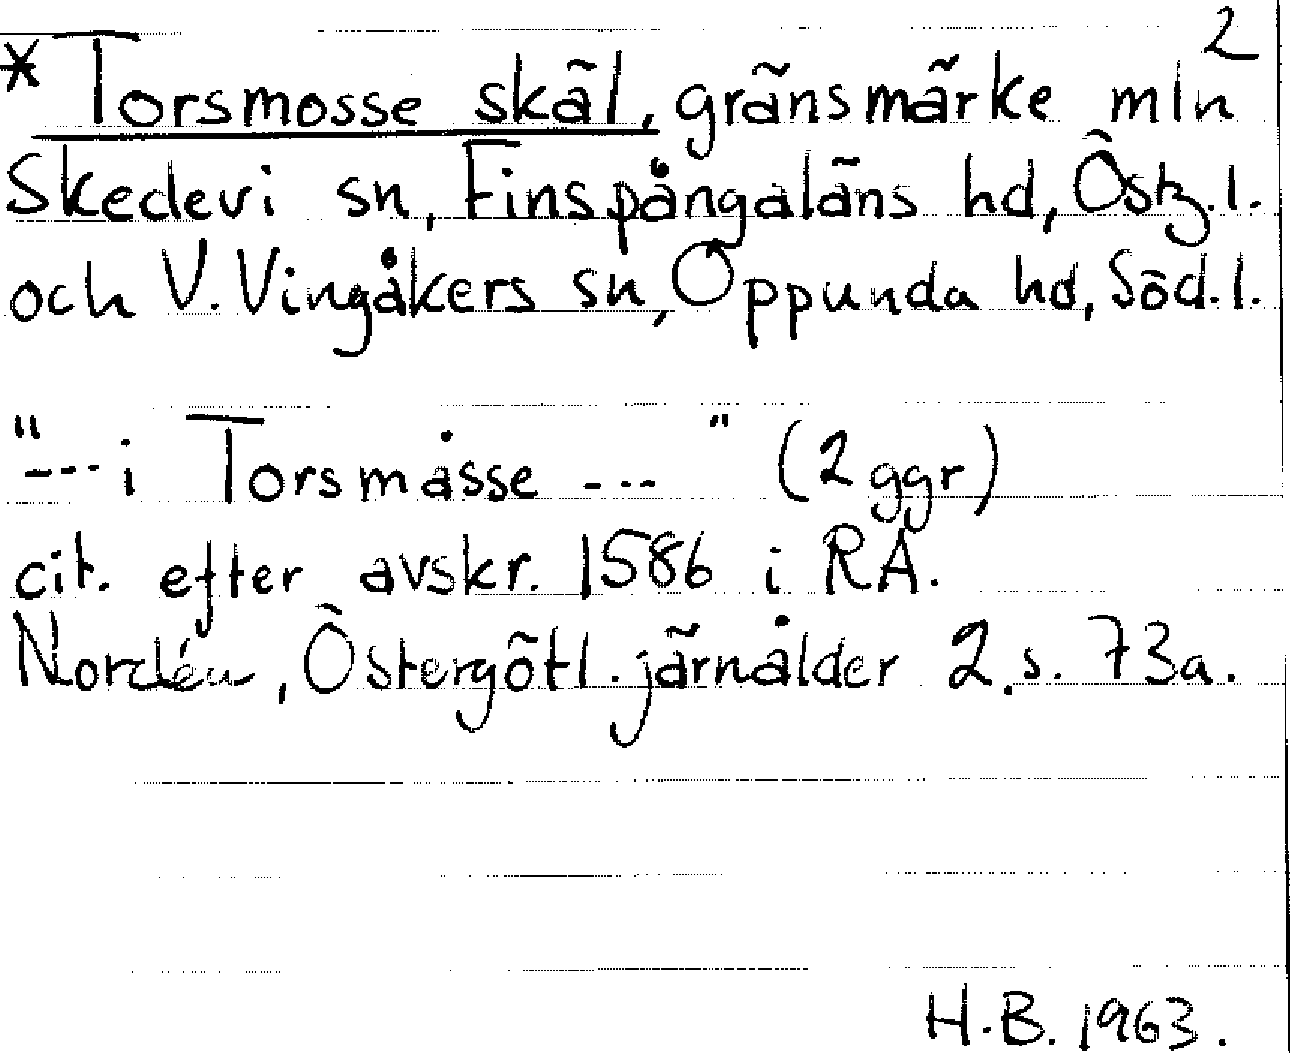 2
* Torsmosse skäl, gränsmärke mln
Skedevi sn, Finspångaläns hd, Östg. l.
och V. Vingåkers sn, Oppunda hd, Söd. l.
"--- i Torsmåsse --- " (2 ggr)
cit. efter avskr. 1586 i RA.
Nordén, Östergötl. järnålder 2, s. 73a.
H.B. 1963.